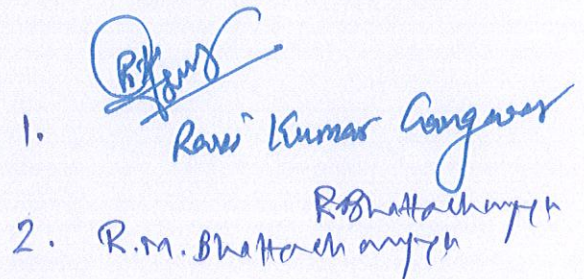 1.
Ravi Kumar Gangwar
RBhattacharyya
2. R.M. Bhattacharyya